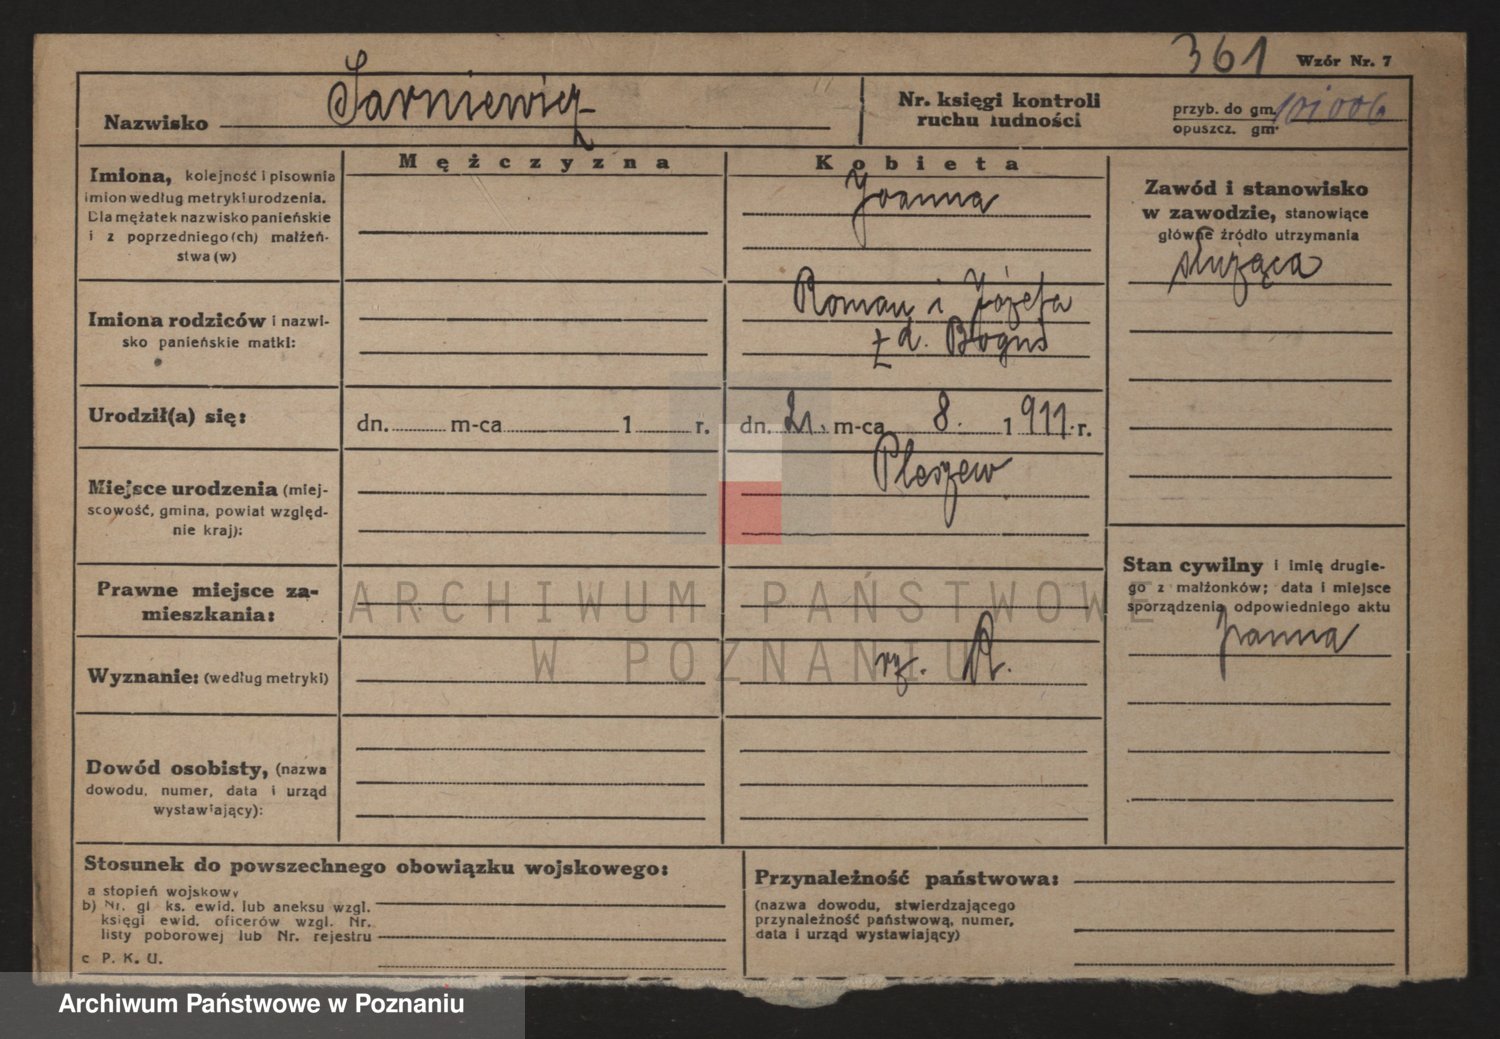 361 Wzór Nr. 7
Nazwisko Sarniewicz
Nr. księgi kontroli
ruchu ludności
przyb. do gm. 101006
opuszcz. gm.
Mężczyzna
Kobieta
Imiona, kolejność i pisownia
imion według metryki urodzenia.
Dla mężatek nazwisko panieńskie
i z poprzedniego(ch) małżeń-
stwa (w)
Joanna
Zawód i stanowisko
w zawodzie, stanowiące
główne źródło utrzymania
służąca
Imiona rodziców i nazwi-
sko panieńskie matki:
Roman i Józefa
z d. Boguś
Urodził(a) się:
dn. m-ca 1 r.
dn. 21. m-ca 8. 1911. r.
Miejsce urodzenia (miej-
scowość, gmina, powiat względ-
nie kraj):
Pleszew
Prawne miejsce za-
mieszkania:
Stan cywilny i imię drugie-
go z małżonków; data i miejsce
sporządzenia odpowiedniego aktu
panna
Wyznanie: (według metryki)
rz. K.
Dowód osobisty, (nazwa
dowodu, numer, data i urząd
wystawiający):
Stosunek do powszechnego obowiązku wojskowego:
a stopień wojskowy
b) Nr. gł ks. ewid. lub aneksu wzgl.
księgi ewid. oficerów wzgl. Nr.
listy poborowej lub Nr. rejestru
c P. K. U.
Przynależność państwowa:
(nazwa dowodu, stwierdzającego
przynależność państwową, numer,
data i urząd wystawiający)
ARCHIWUM PAŃSTWOWE
W POZNANIU
Archiwum Państwowe w Poznaniu